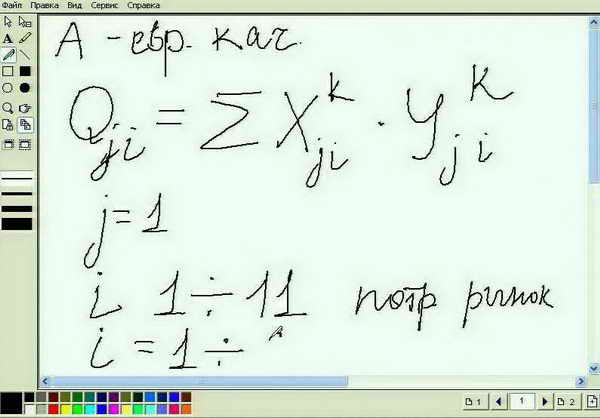 Файл Правка Вид Сервис Справка
А - евр. кач.
Qji = Σ Xji^k · Yji^k
j=1
i 1÷11 потр ринок
i = 1 ÷
1 1 2